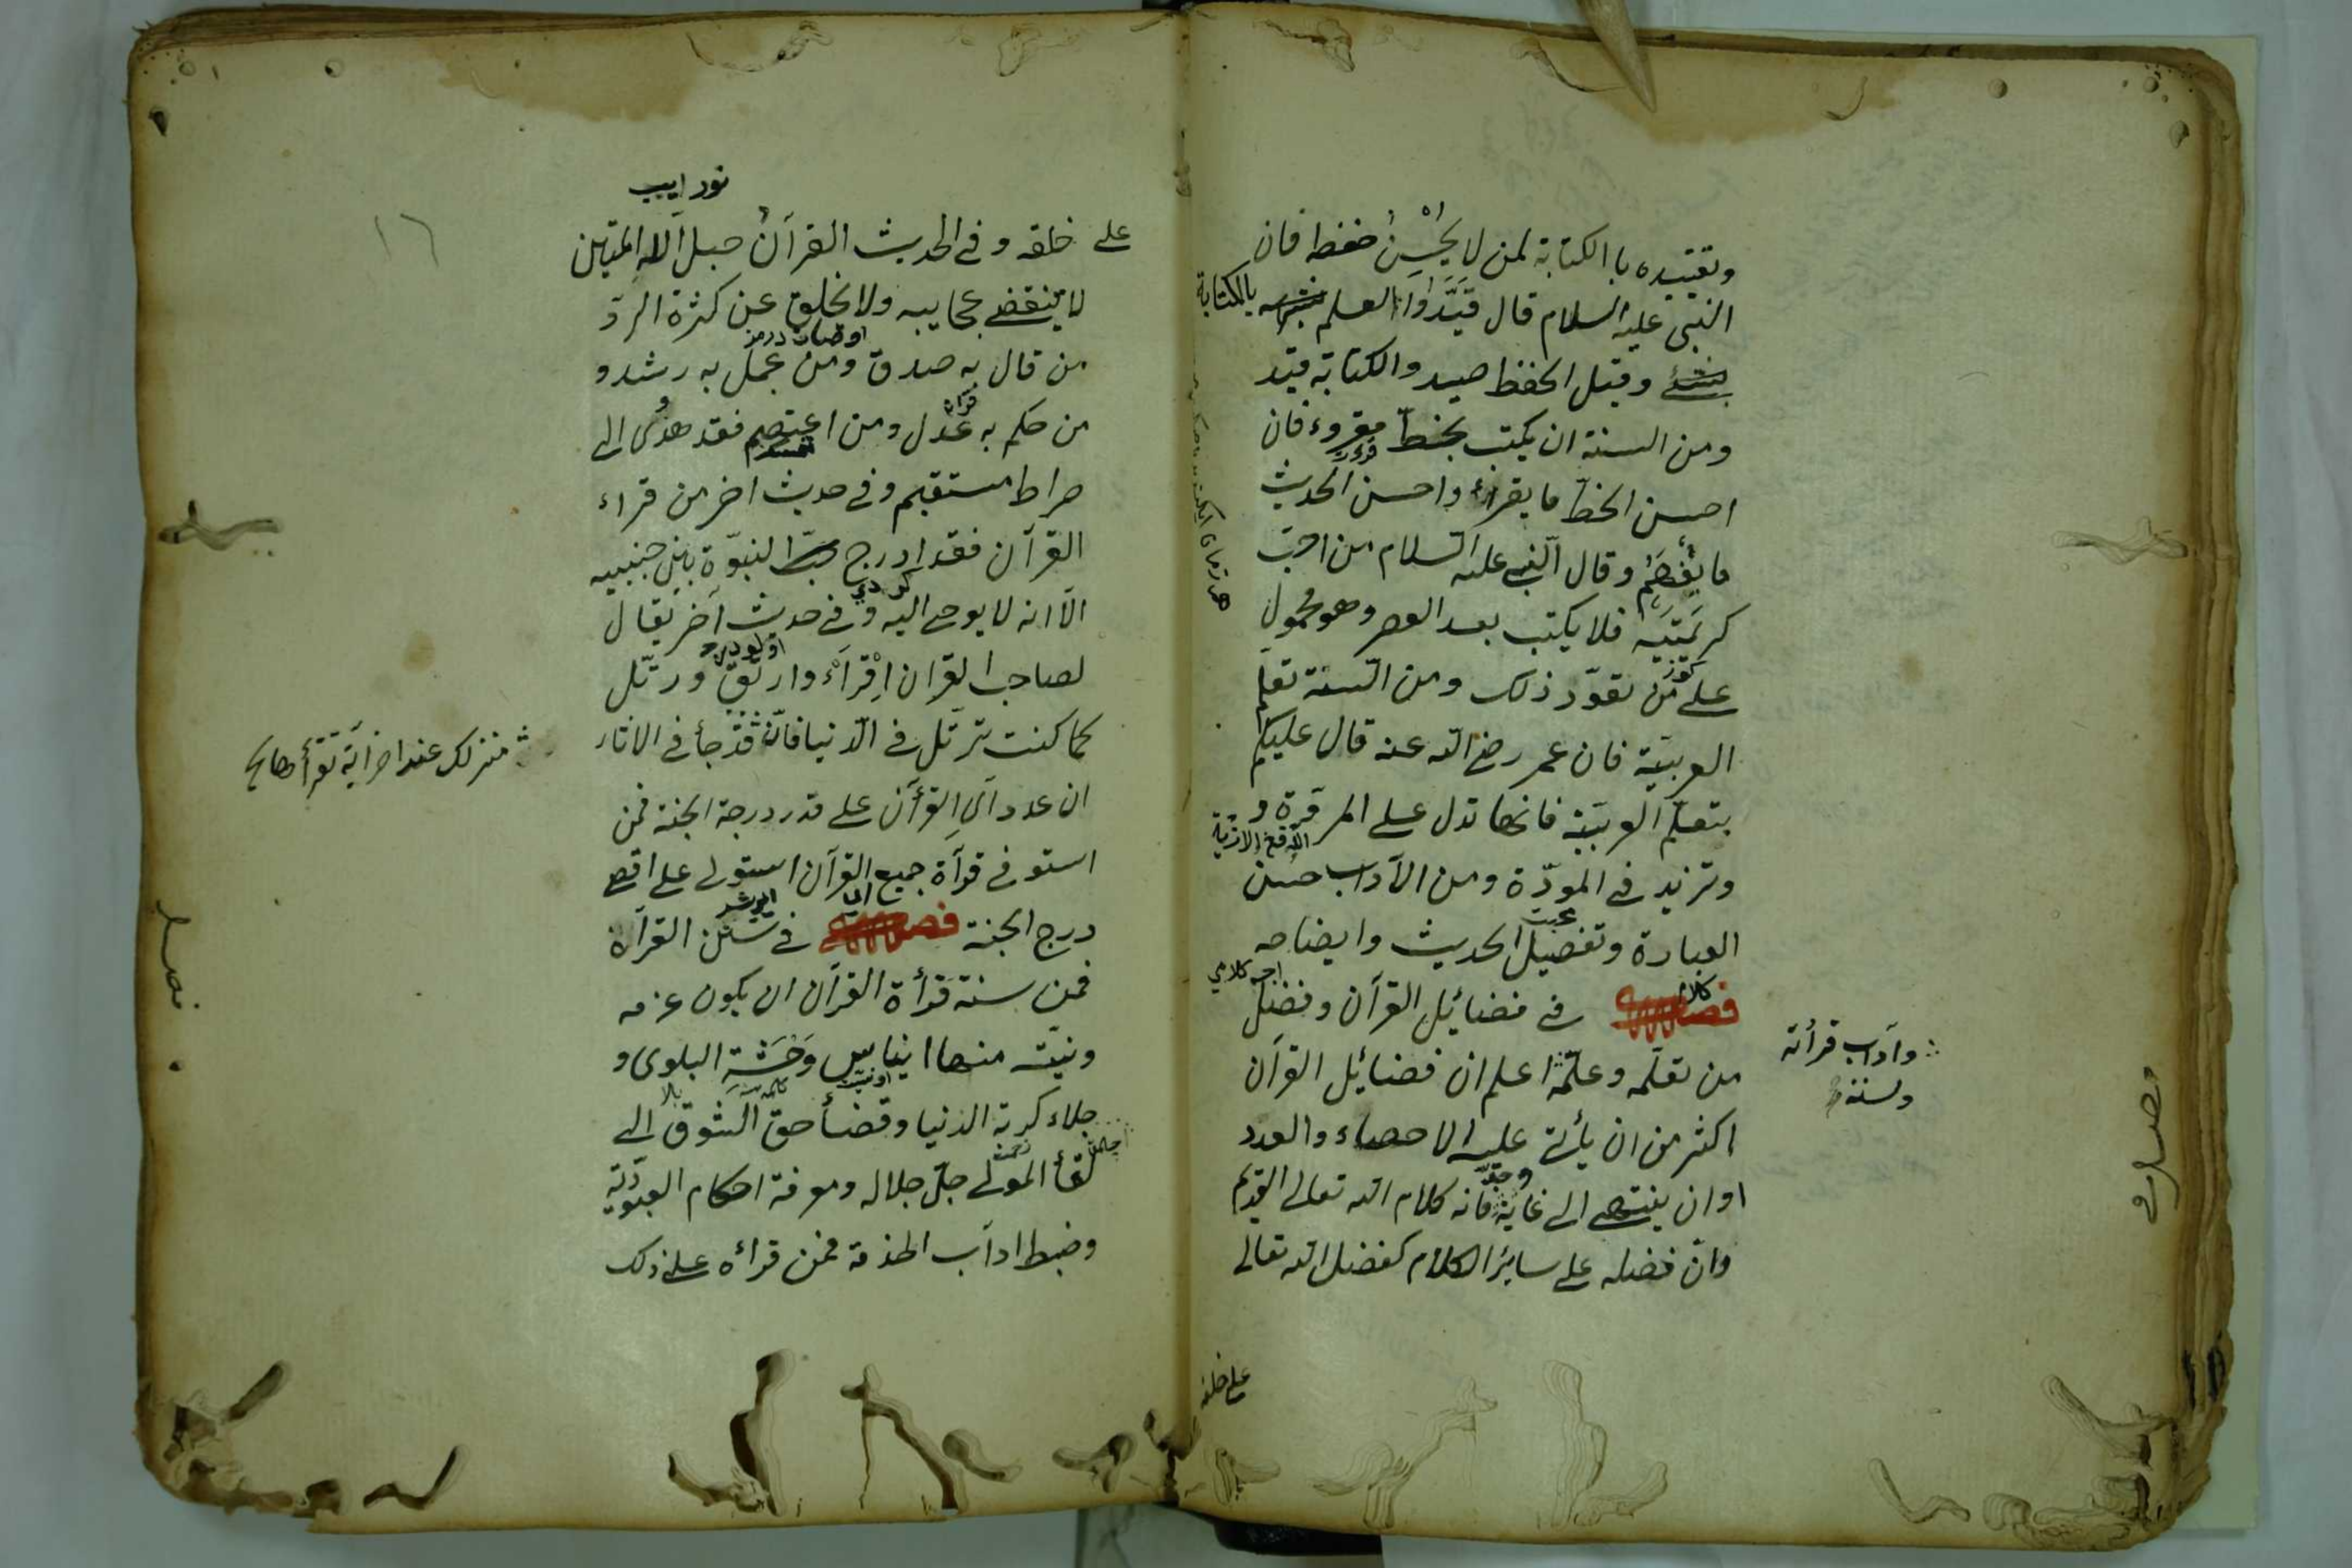 وتقييده با الكتابة لمن لا يحسن حفظا فان
النبى عليه السلام قال قيدوا العلم بالكتابة
وقيل الحفظ صيد والكتابة قيد
ومن السنة ان يكتب بخط مقروء فان
احسن الخط ما يقرأ واحسن الحديث
ما يفهم وقال النبى عليه السلام من احب
كريمتيه فلا يكتب بعد العصر وهو محمول
على من تعود ذلك ومن السنة تعلم
العربية فان عمر رضى الله عنه قال عليكم
بتعلم العربية فانها تدل على المروة و
وتزيد فى المودة ومن الآداب حسن
العبارة وتفصيل الحديث وايضاحه
فصل فى فضائل القرآن وفضل
وآداب قرأته
وسننه
من تعلمه وعلمه اعلم ان فضائل القرآن
اكثر من ان يأتى عليه الاحصاء والعدد
او ان ينتهى الى غاية وحد فانه كلام الله تعالى القديم
وان فضله على سائر الكلام كفضل الله تعالى
على خلقه
١٦
على خلقه وفى الحديث القرآن حبل الله المتين
لا ينقضى عجايبه ولا يخلق عن كثرة الرد
من قال به صدق ومن عمل به رشد و
من حكم به عدل ومن اعتصم فقد هدى الى
صراط مستقيم وفى حديث اخر من قراء
القرآن فقد ادرج النبوة بين جنبيه
الا انه لا يوحى اليه وفى حديث آخر يقال
لصاحب القران اقرأ وارتق ورتل
كما كنت ترتل فى الدنيا فان قد جأ فى الاثار
منزلك عند اخر آية تقرأها
ان عدد آى القرأن على قدر درجة الجنة فمن
استوفى قرآة جميع القرآن استولى على اقصى
درج الجنة فصل فى سنن القرآن
فمن سنة قرأة القرآن ان يكون عزمه
ونيته منها ايناس وحشة البلوى و
جلاء كربة الدنيا وقضأ حق الشوق الى
لقأ المولى جل جلاله ومعرفة احكام العبودية
وضبط اداب الخدمة فمن قراءه على ذلك